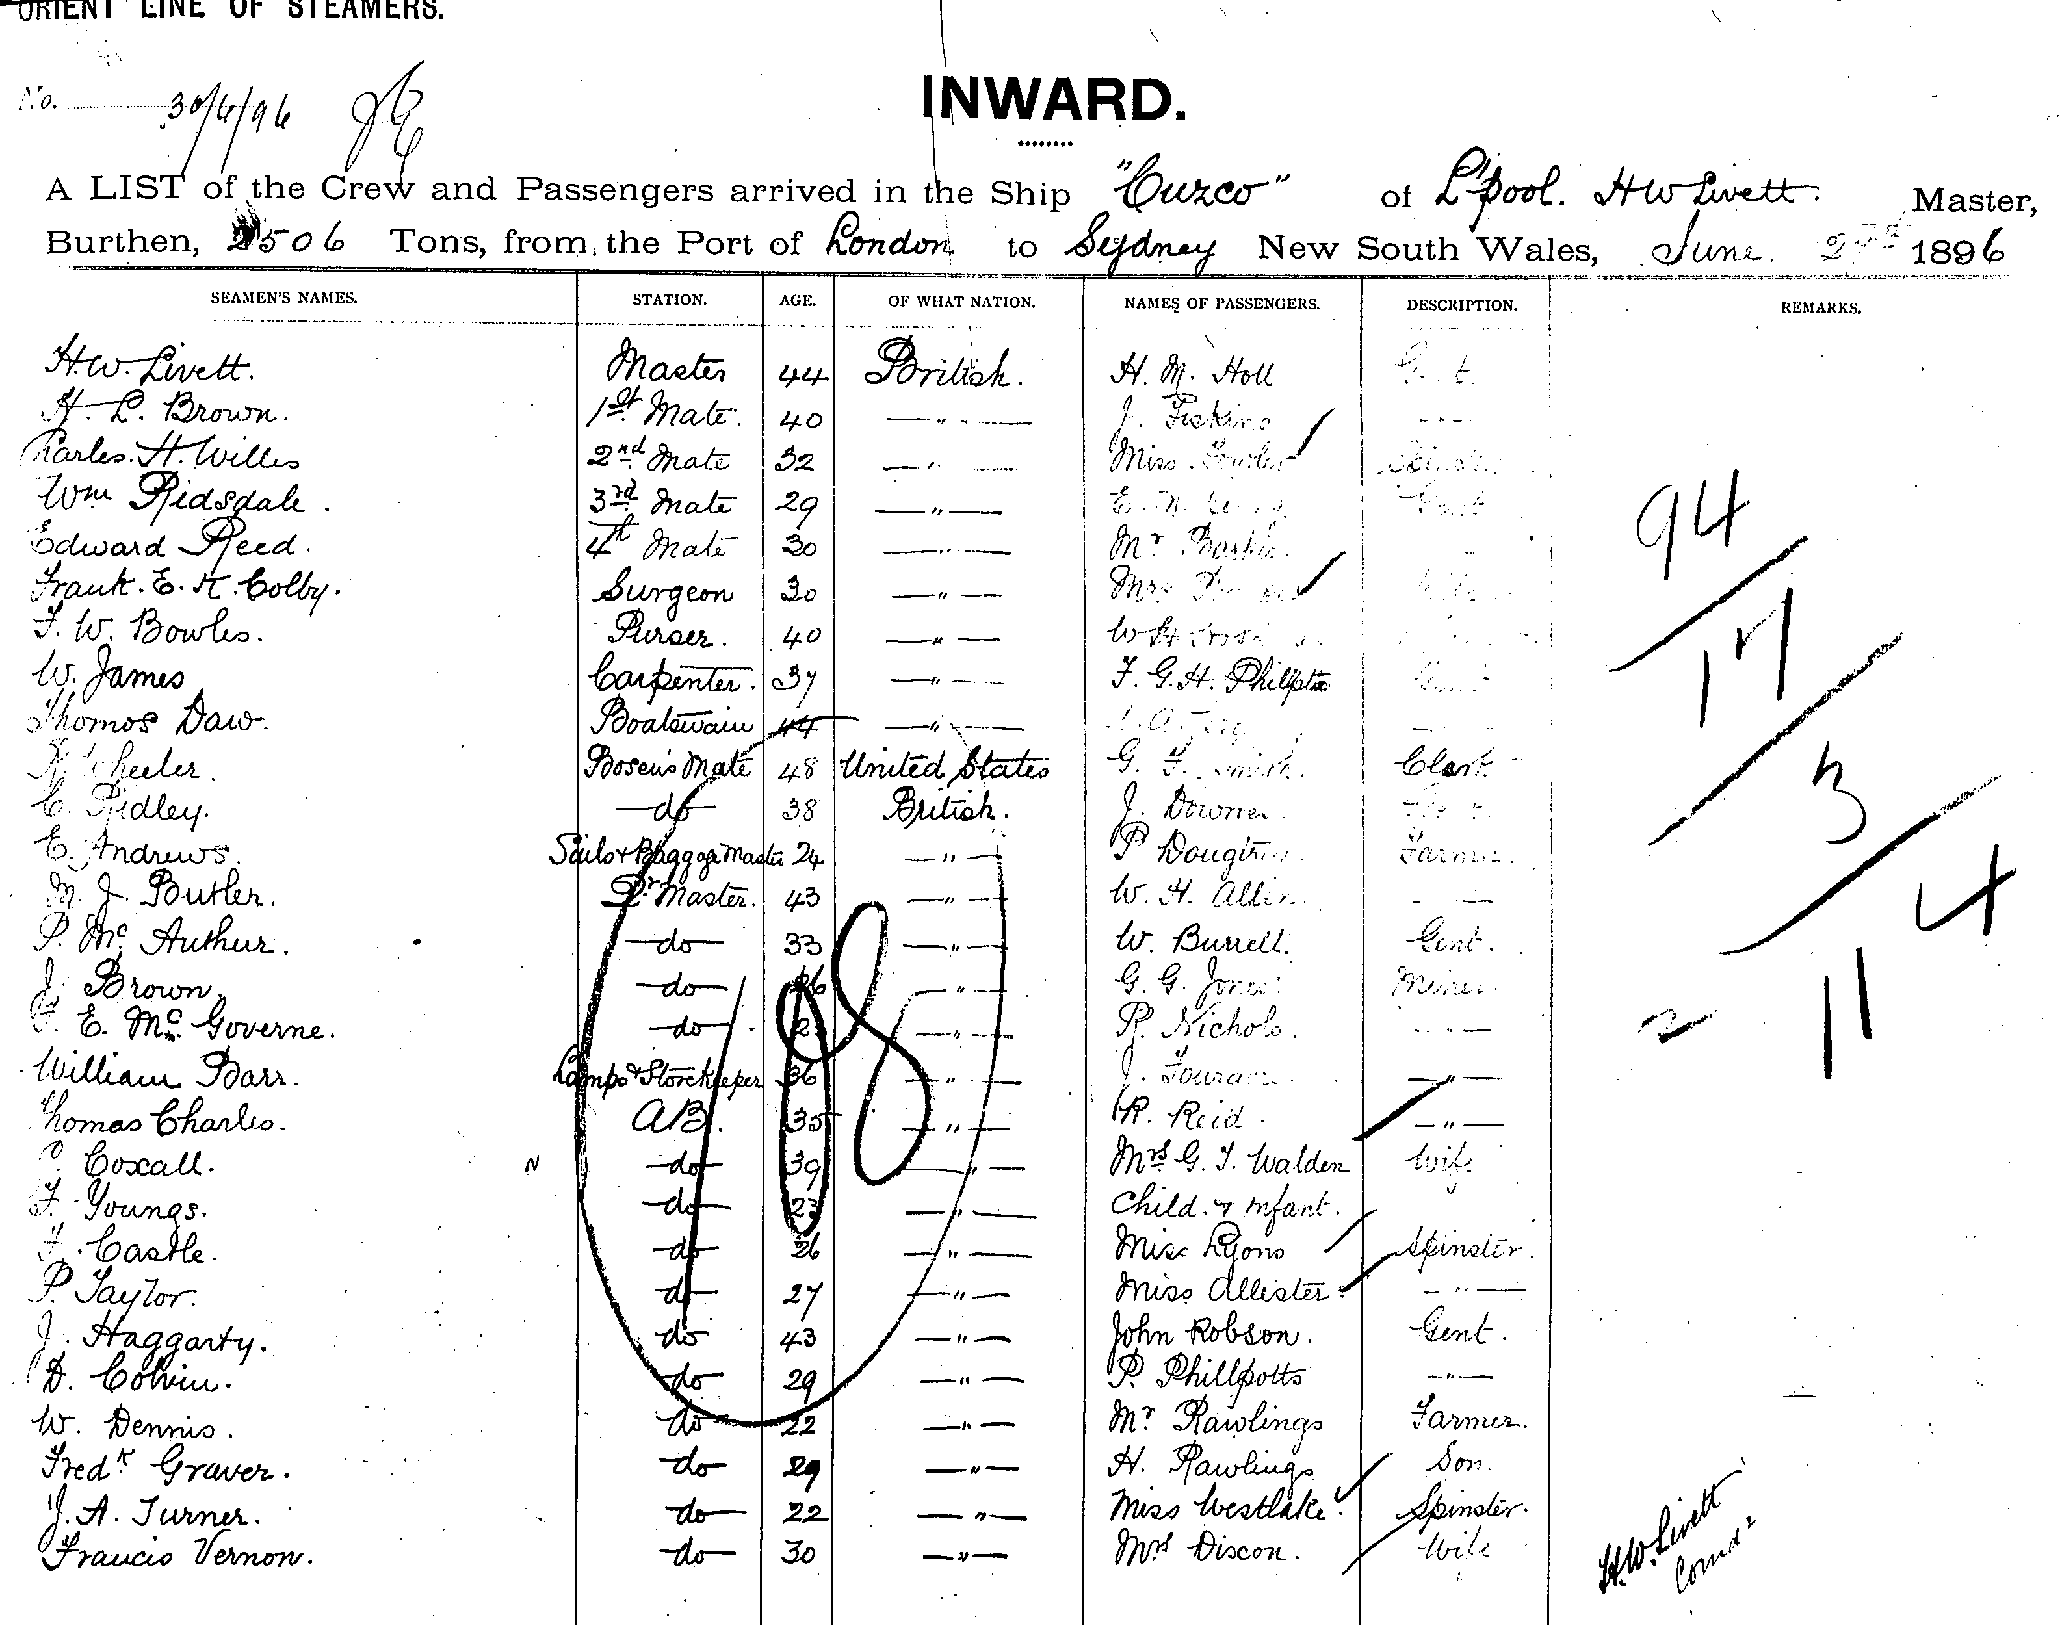 ORIENT LINE OF STEAMERS.
No. 30/6/96
INWARD.
A LIST of the Crew and Passengers arrived in the Ship "Cuzco" of L'pool. H W Livett. Master,
Burthen, 2506 Tons, from the Port of London to Sydney New South Wales, June 1896
SEAMEN'S NAMES. STATION. AGE. OF WHAT NATION. NAMES OF PASSENGERS. DESCRIPTION. REMARKS.
H. W. Livett. Master 44 British. H. M. Holl
H. L. Brown. 1st Mate. 40 — " — J.
Charles. H. Willes 2nd Mate 32 — " — Miss
Wm Ridsdale. 3rd Mate 29 — " — Gent
Edward Reed. 4th Mate 30 — " — Mr
Frank. E. A. Colby. Surgeon 30 — " — Mrs
F. W. Bowles. Purser. 40 — " — W H
W. James Carpenter. 37 — " — F. G. H. Philpotts
Thomas Daw. Boatswain 44 — " —
Wheeler. Bosein's Mate 48 United States G. F. Smith. Clerk
C. Ridley. — do — 38 British. J. Downer
E. Andrews. Sailor & Baggage Master 24 — " — P Farmer.
M. J. Butler. Qr Master. 43 — " — W. H. Allen
P. Mc Authur. — do — 33 — " — W. Burrell. Gent.
J. Brown. — do — 26 — " — G. G. Jones Miner.
F. E. Mc Governe. — do — — " — R. Nichols. — " —
William Barr. Lamps & Storekeeper 36 — " — J. — " —
Thomas Charles. AB. 35 — " — R. Reid. — " —
Coxall. — do — 39 — " — Mrs G. T. Walden Wife
F. Youngs. — do — 23 — " — Child. & Infant.
F. Castle. do 26 — " — Miss Lyons Spinster.
P. Taylor. do 27 — " — Miss Allister. — " —
J. Haggarty. do 43 — " — John Robson. Gent.
D. Colvin. do 29 — " — P. Phillpotts — " —
W. Dennis. do 22 — " — Mr Rawlings Farmer.
Fredk Graver. do 29 — " — H. Rawlings Son.
J. A. Turner. do 22 — " — Miss Westlake. Spinster.
Francis Vernon. do 30 — " — Mrs Discon. Wife
94
17
3
4
11
108
H.W. Livett
Comdr